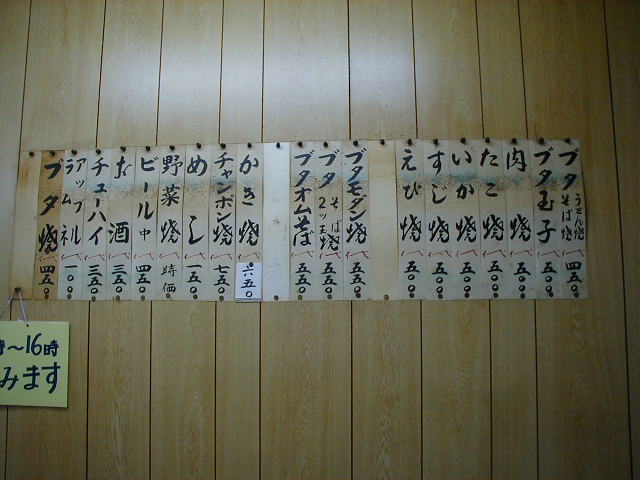 ブタ うどん焼 そば焼 四五〇
ブタ玉子 五五〇
肉焼 五五〇
たこ焼 五五〇
いか焼 五五〇
すじ焼 五五〇
えび焼 五五〇
ブタモダン焼 五五〇
ブタ そば 2ッ玉 焼 五五〇
ブタオムそば 五五〇
かき焼 六五〇
チャンポン焼 七五〇
めし 一五〇
野菜焼 時価
ビール 中 四五〇
お酒 三五〇
チューハイ 三五〇
アップル ラムネ 一〇〇
ブタ焼 四五〇
時～16時
みます